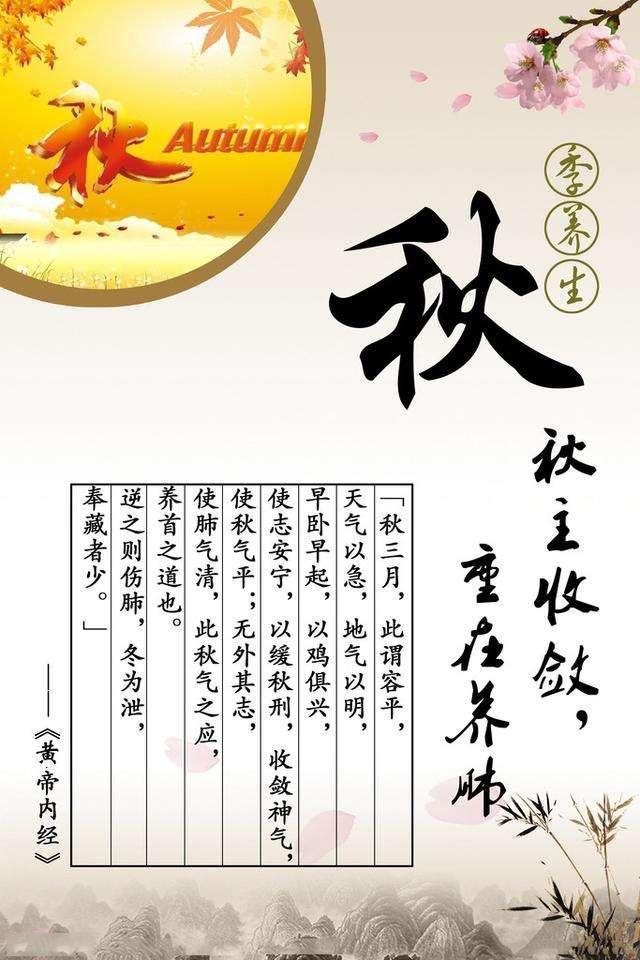 秋
Autumn
季养生
秋
秋主收敛，
重在养肺
「秋三月，此谓容平，
天气以急，地气以明，
早卧早起，以鸡俱兴，
使志安宁，以缓秋刑，收敛神气，
使秋气平；无外其志，
使肺气清，此秋气之应，
养首之道也。
逆之则伤肺，冬为泄，
奉藏者少。」
——《黄·帝内经》